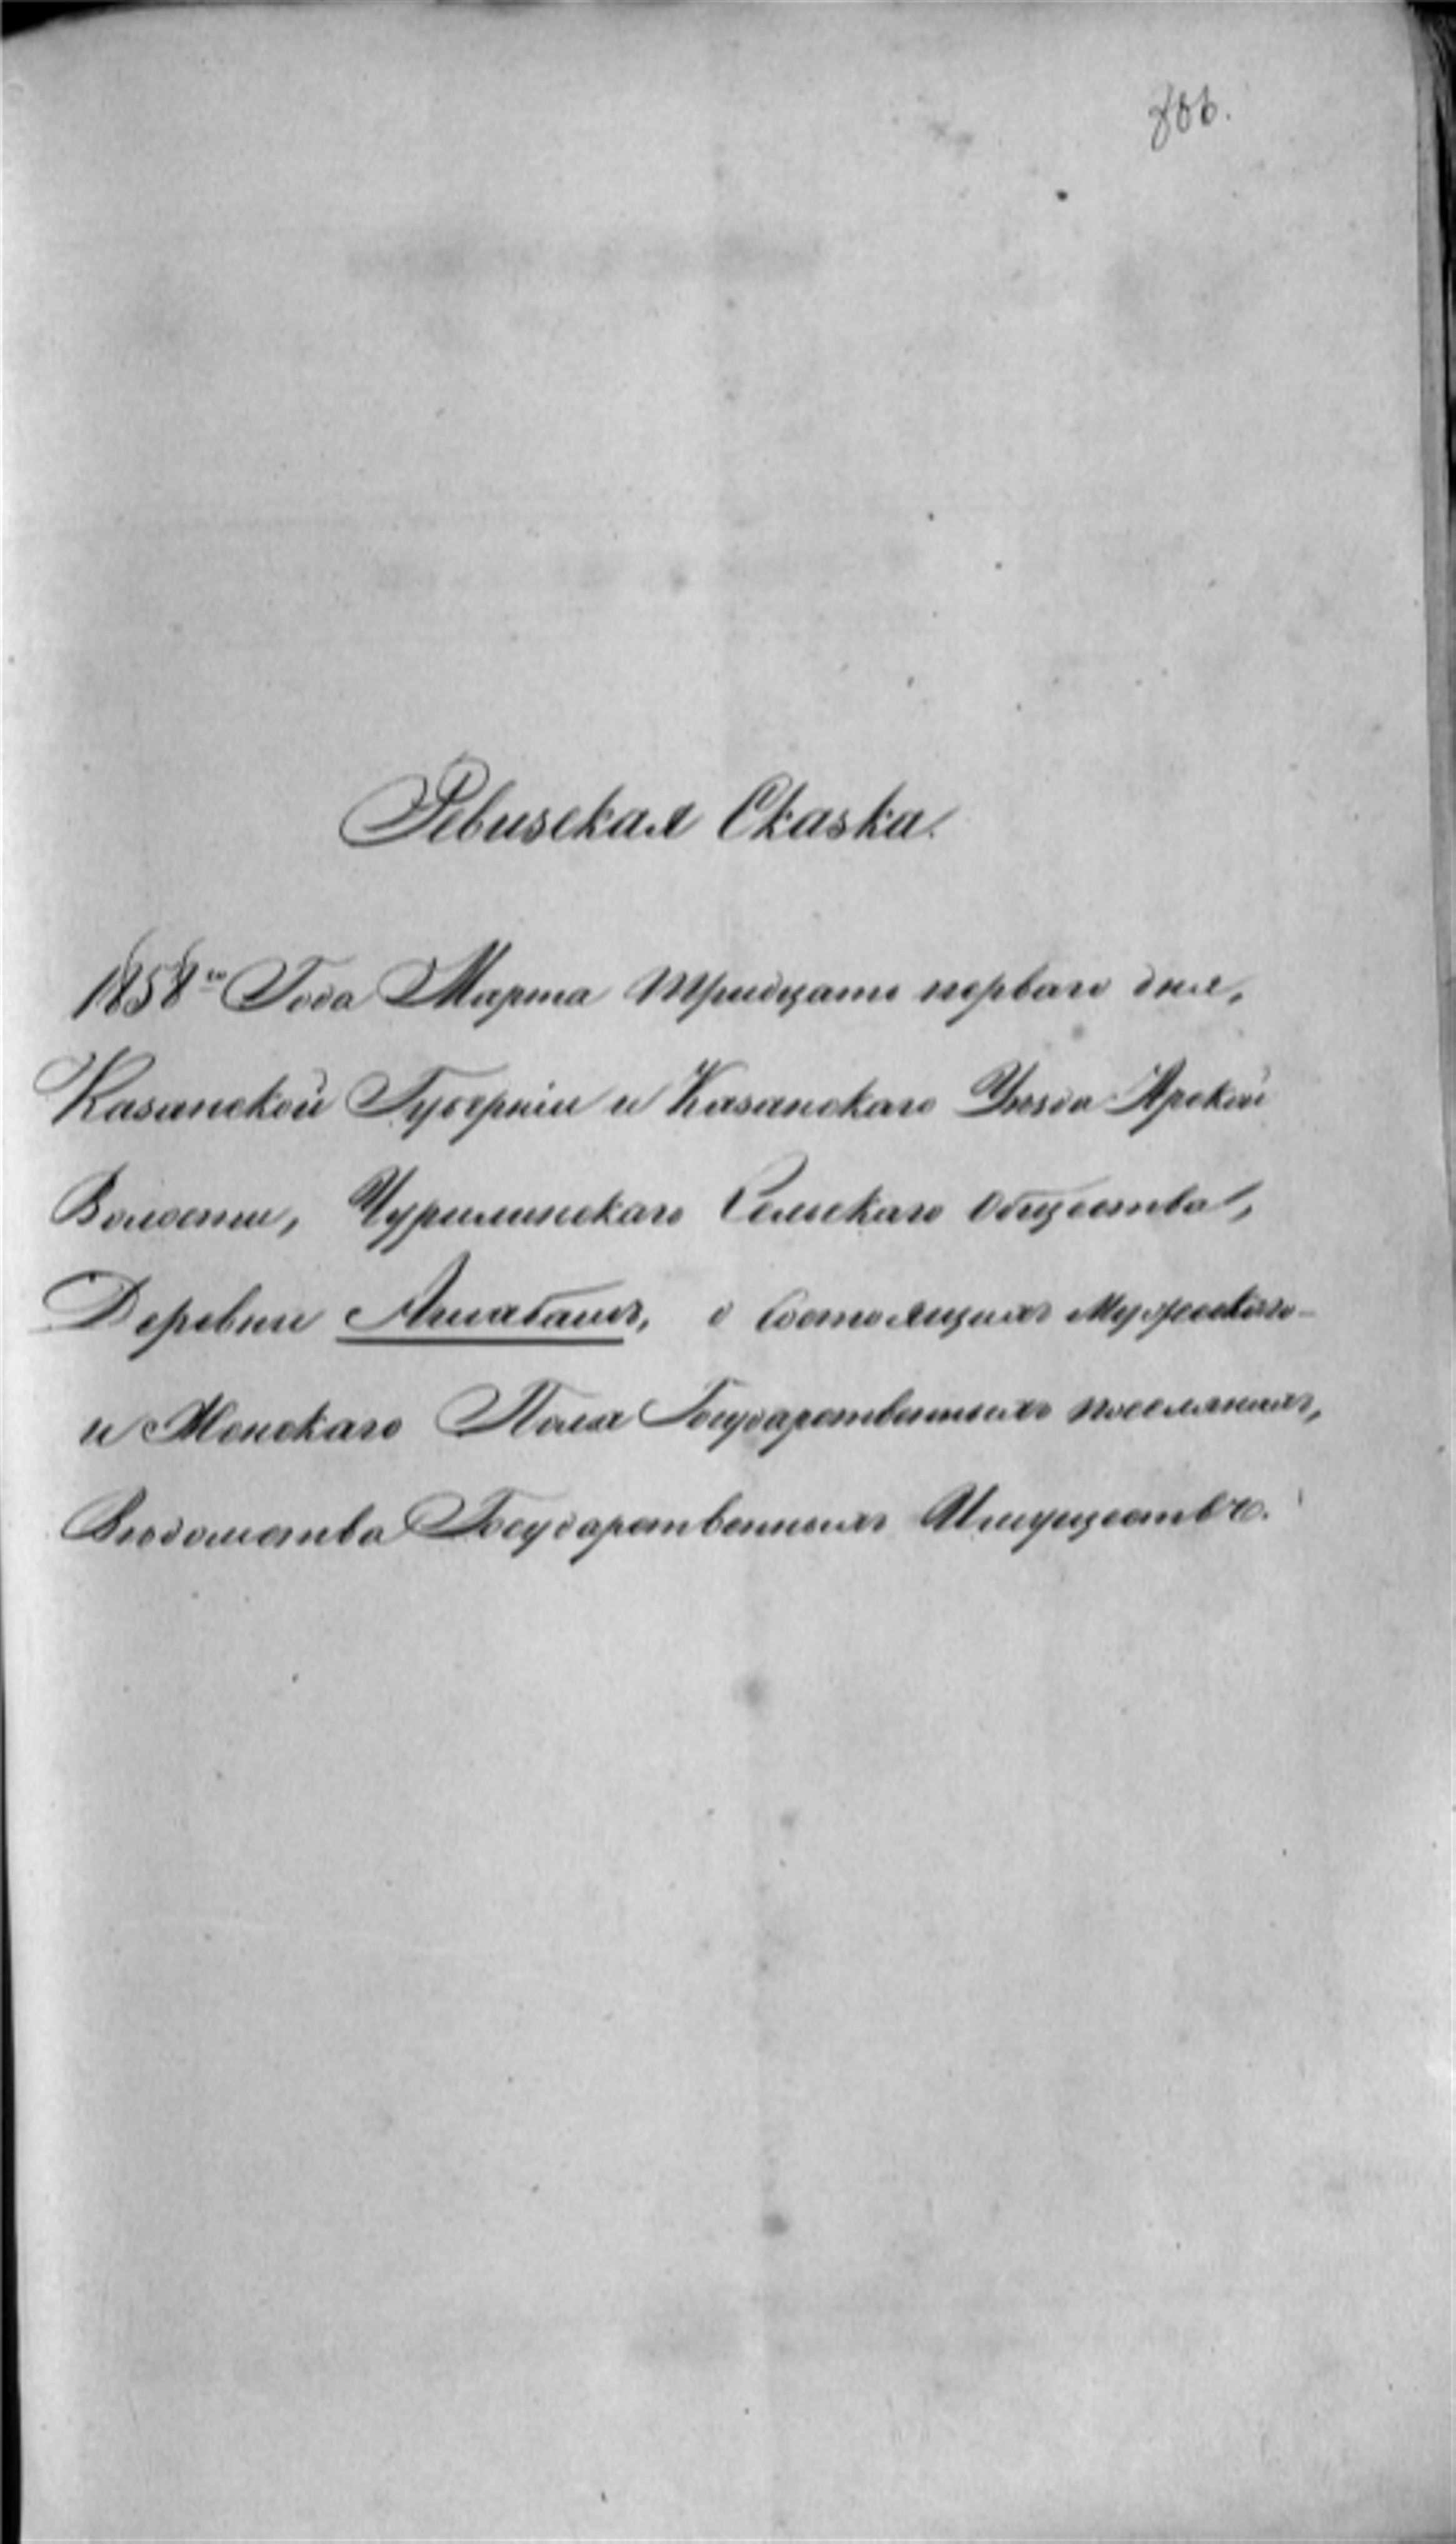 806.
Ревизская Сказка.
1858го Года Марта тридцать перваго дня,
Казанской Губерніи и Казанскаго Уѣзда Арской
Волости, Чурилинскаго Сельскаго общества,
Деревни Ашабашъ, о состоящихъ Мужескаго
и Женскаго Пола Государственныхъ поселянахъ,
Вѣдомства Государственныхъ Имуществъ.